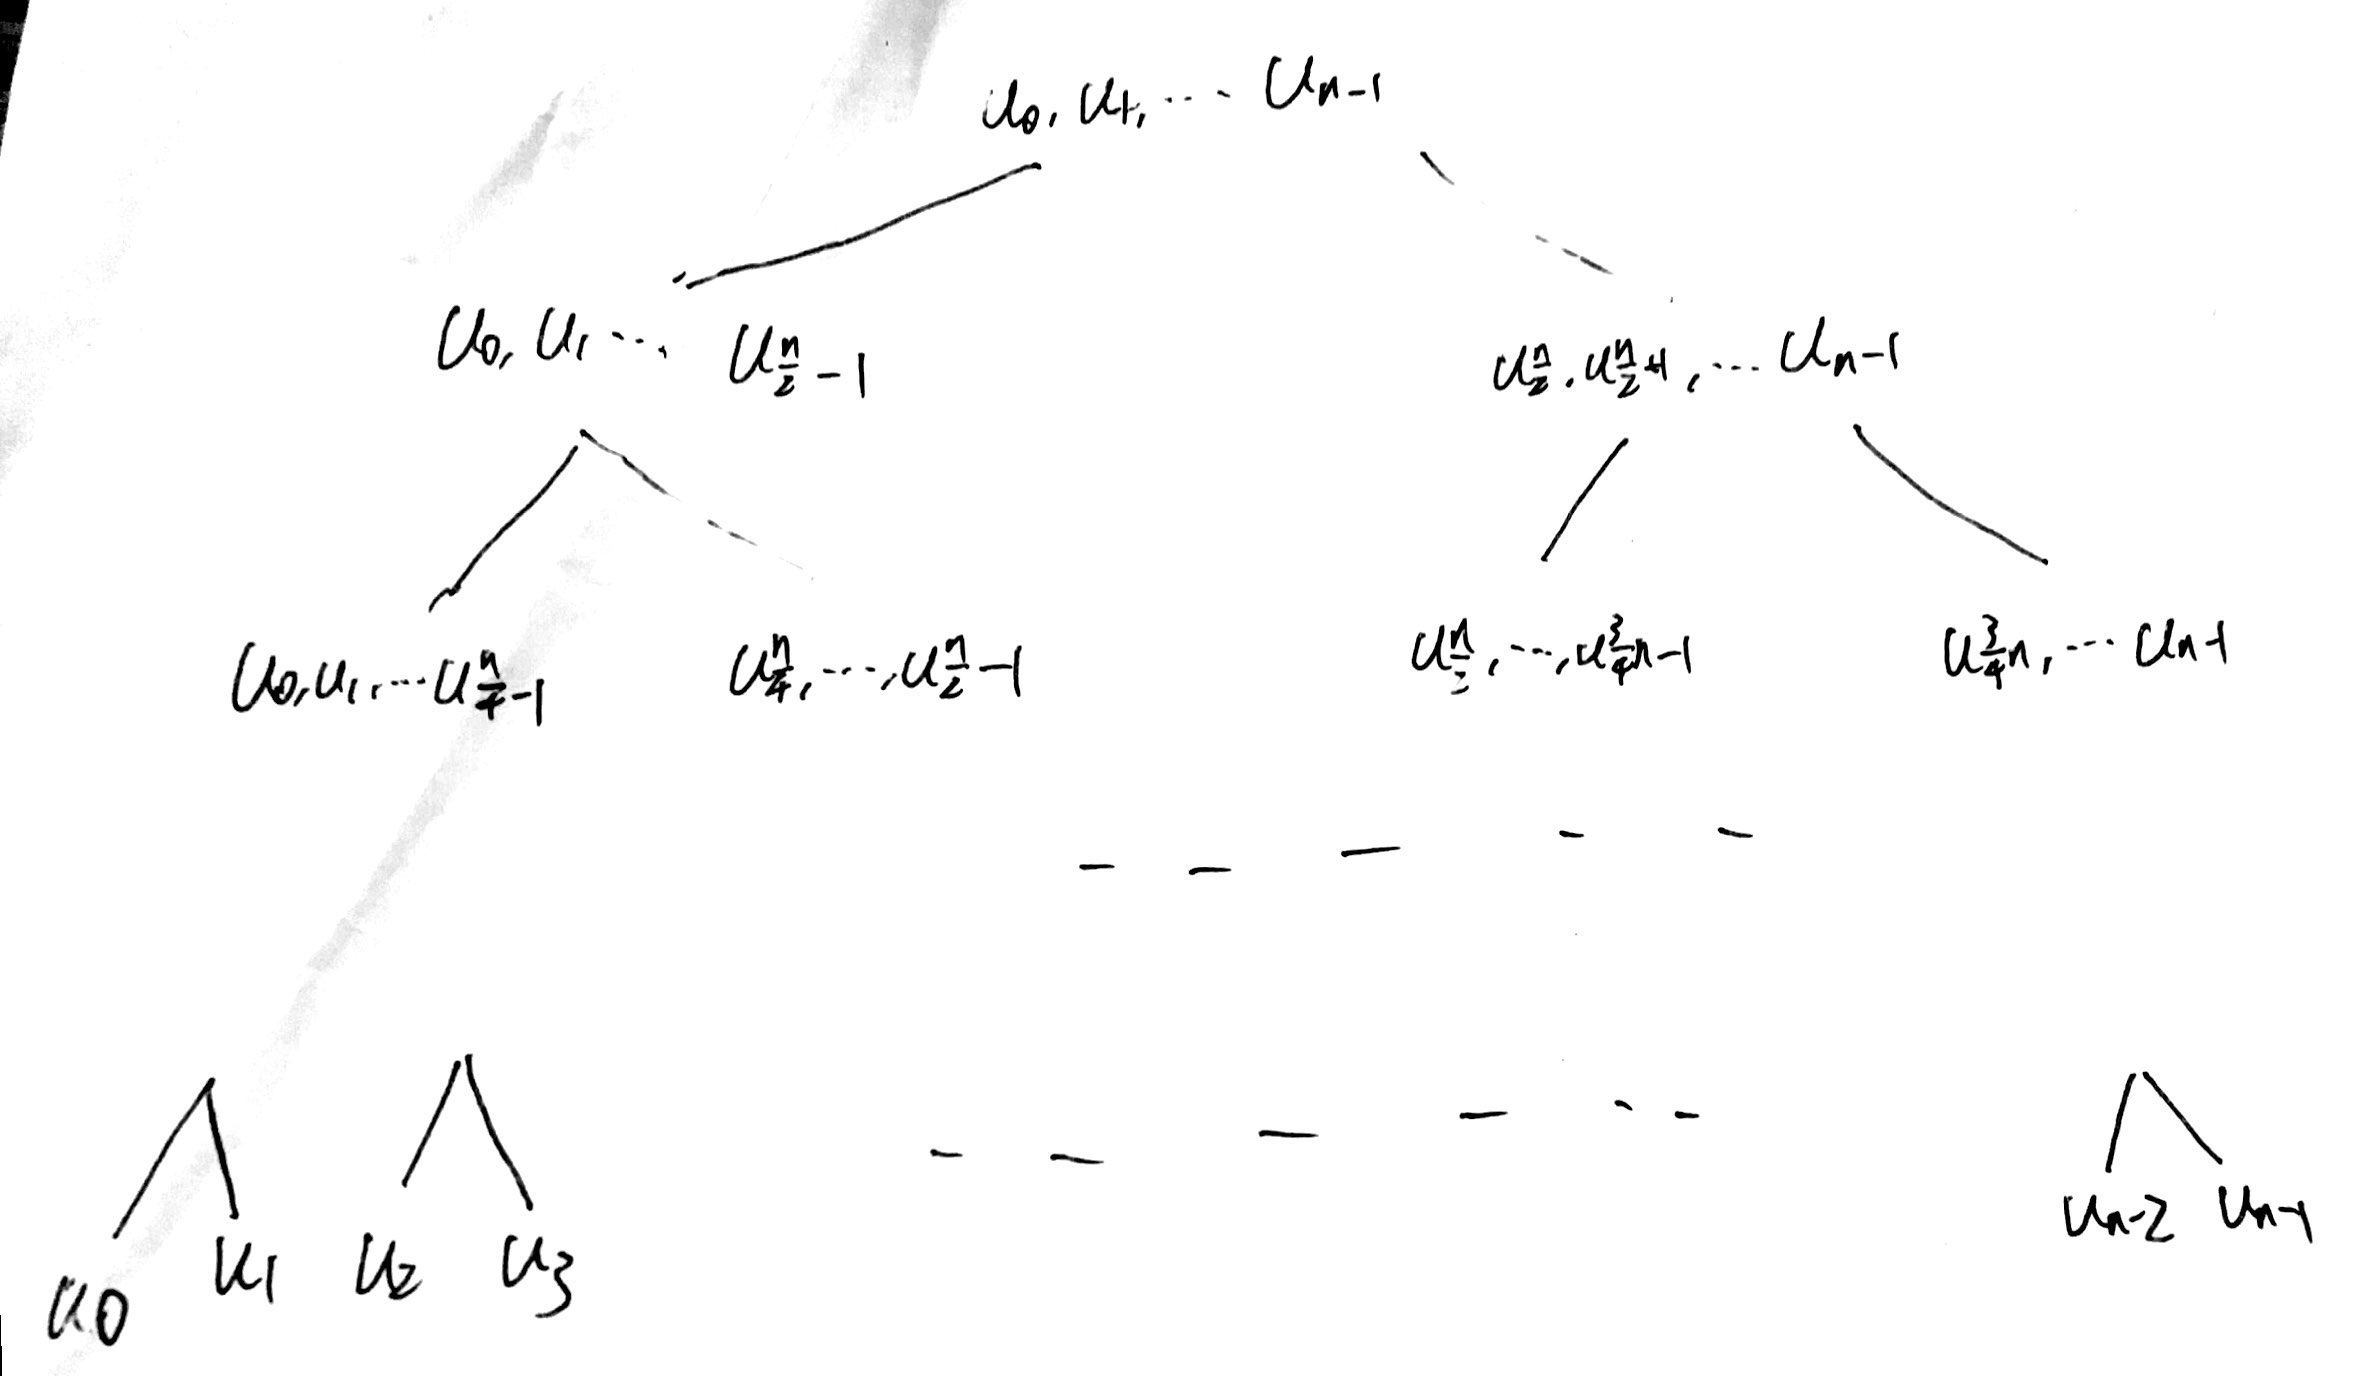 u₀, u₁, ... uₙ₋₁
u₀, u₁ ... u n/2 -1 u n/2, u n/2 +1, ... uₙ₋₁
u₀, u₁, ... u n/4 -1 u n/4, ..., u n/2 -1 u n/2, ..., u 3/4 n-1 u 3/4 n, ... uₙ₋₁
u₀ u₁ u₂ u₃ uₙ₋₂ uₙ₋₁